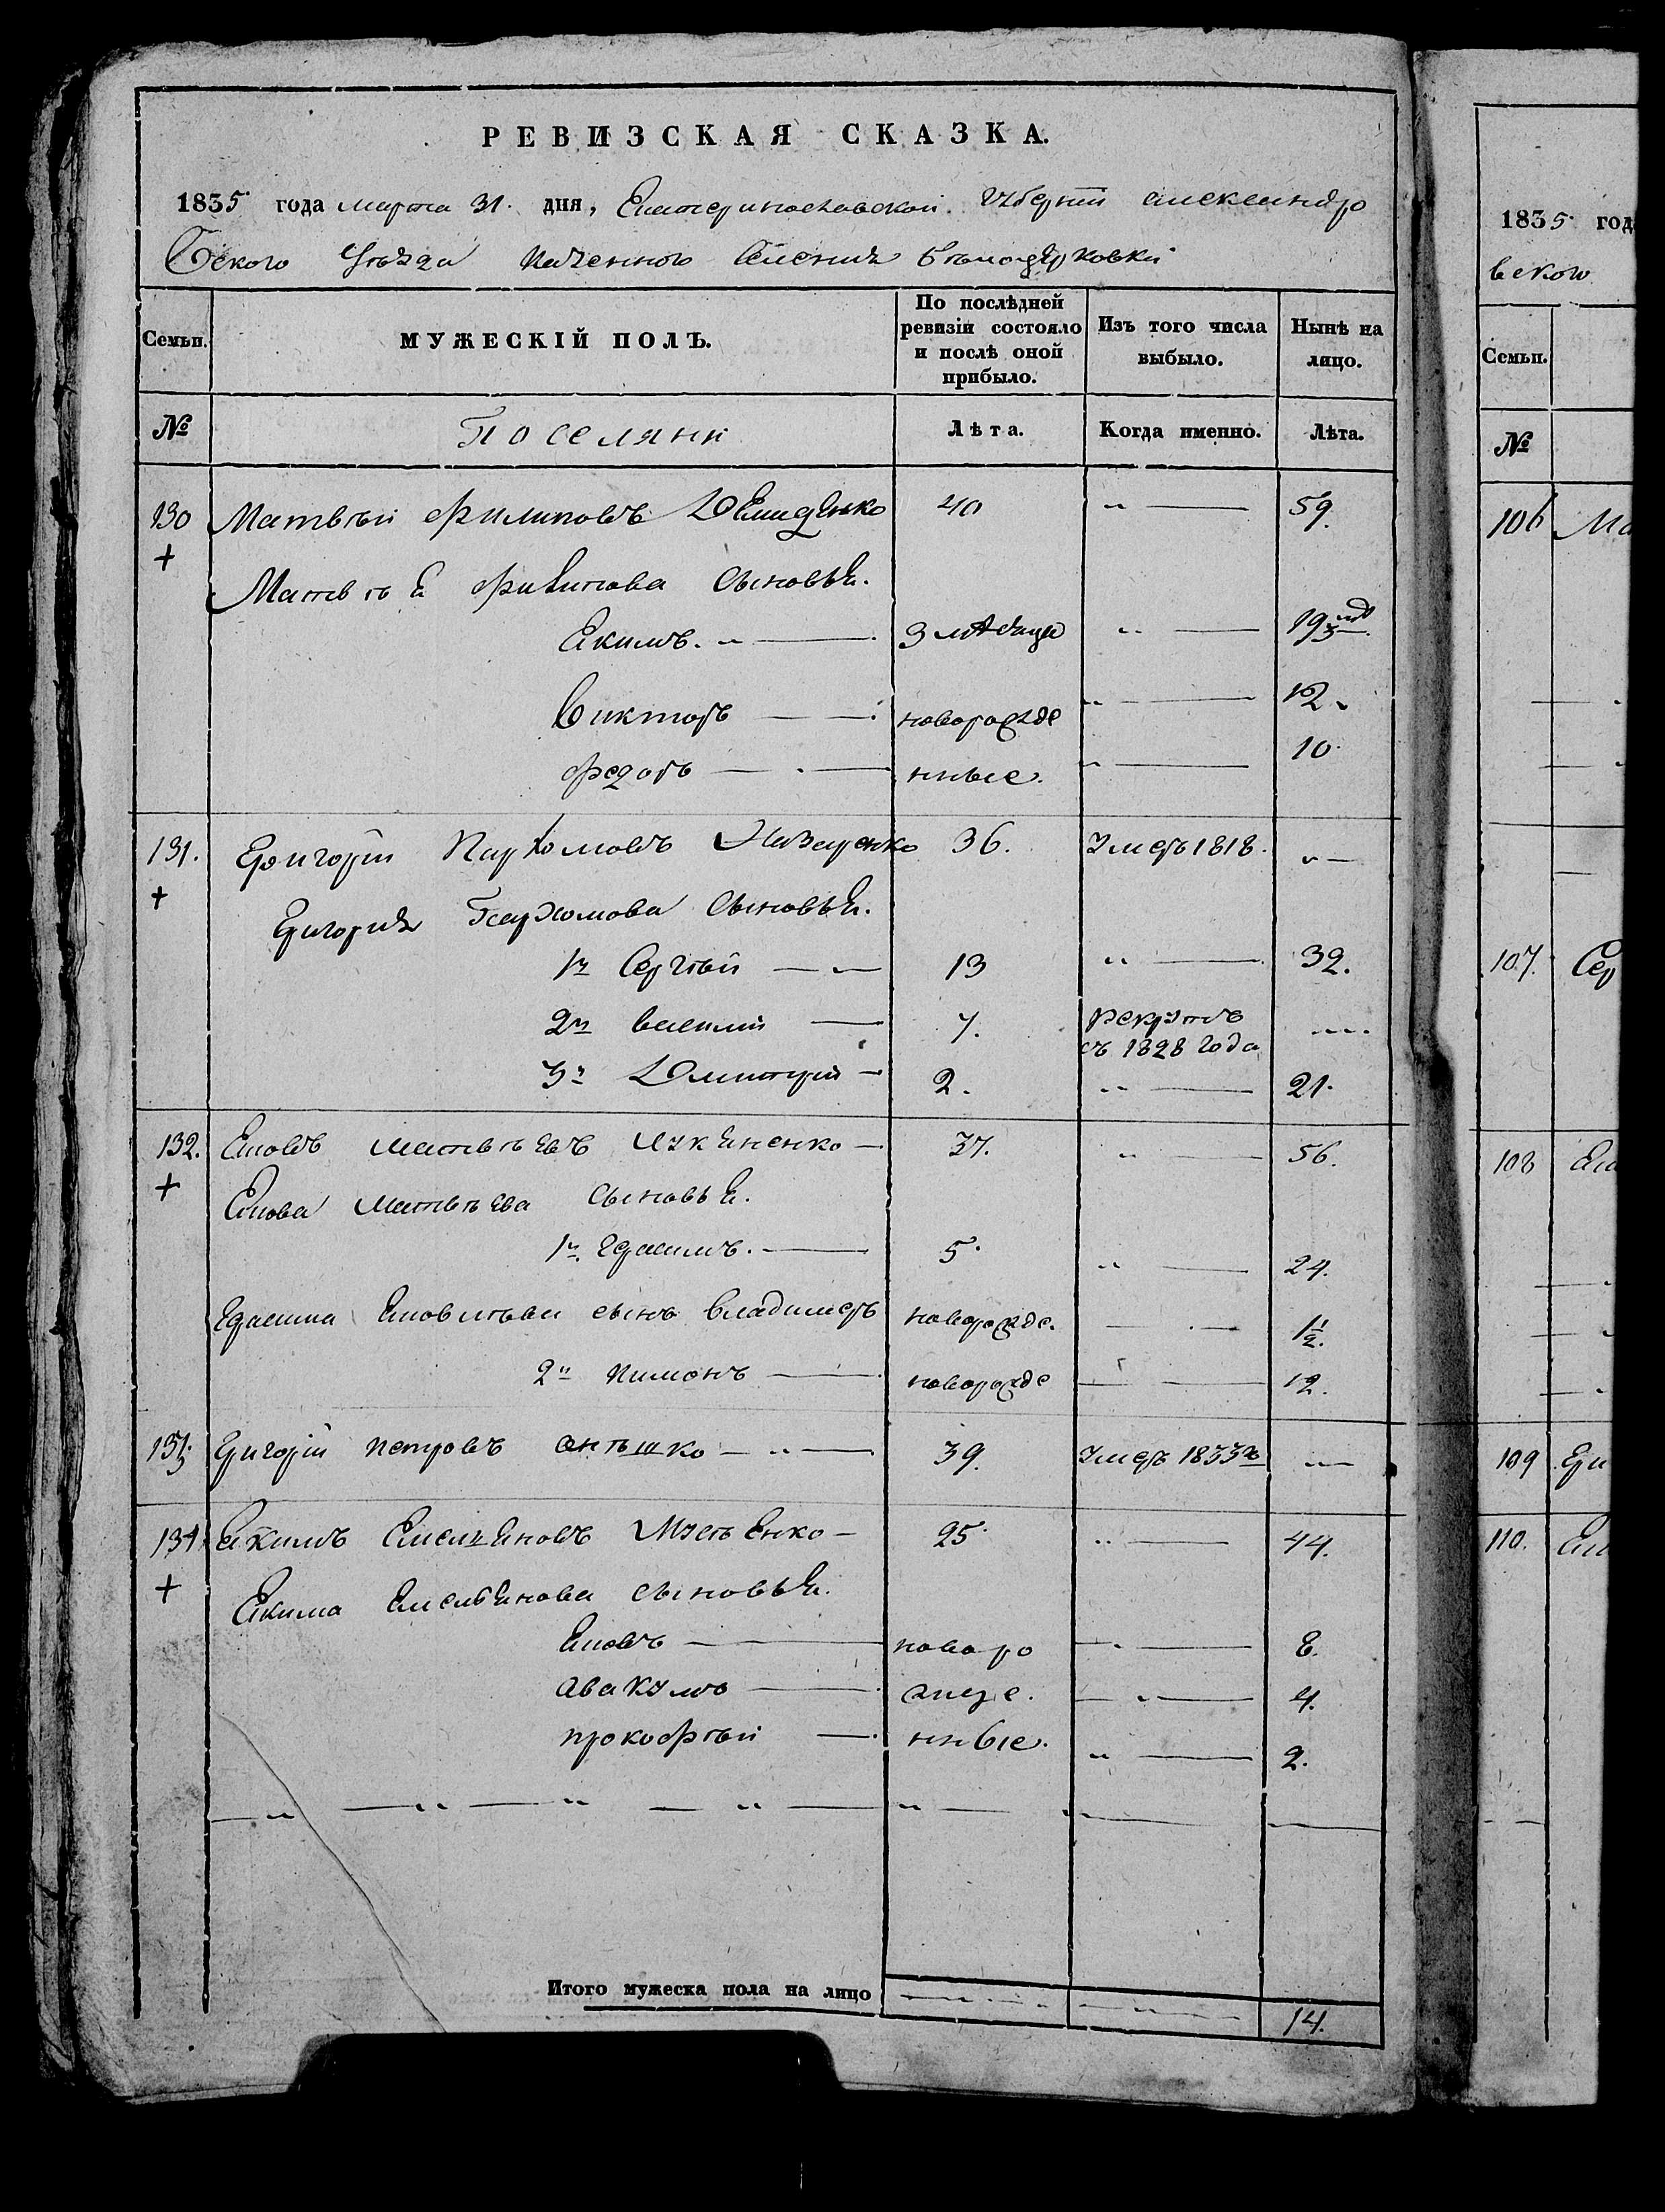 РЕВИЗСКАЯ СКАЗКА.
1835 года марта 31. дня, Екатеринославской Губернии александро
вского уѣзда казенного селения Бѣлоцерковки
Семьи.
МУЖЕСКІЙ ПОЛЪ.
По послѣдней ревизіи состояло и послѣ оной прибыло.
Изъ того числа выбыло.
Нынѣ на лицо.
№ Поселяни Лѣта. Когда именно. Лѣта.
130 Матвѣй Филиповъ Демиденко 40 " — 59.
+
Матвѣя Филипова сыновья.
Якимъ. " — 3 мѣсяца " — 19
Викторъ — новорожде " — 12.
Федотъ — нные. " — 10.
131. Григорій Пархомовъ Назаренко 36. умеръ 1818. " —
+
Григория Пархомова сыновья.
1й Сергѣй — 13 " — 32.
2й василий — 7. рекрутъ
съ 1828 года
3й Дмитрий — 2. " — 21.
132. Иовъ матвѣевъ Лукяненко — 37. " — 56.
+
Иова матвѣева сыновья.
1й герасимъ. — 5. " — 24.
Герасима сынъ владимеръ новорожде. — 1½.
2й пимонъ — новорожде — 12.
133. Григорій петровъ — " — 39. умеръ 1833го —
134 Якимъ Емельяновъ — 25. " — 44.
+
Якима Емельянова сыновья.
Иовъ — новоро — 8.
авакумъ — жде. — " — 4.
прокофѣй — нные. " — 2.
Итого мужеска пола на лицо 14.
1835 год
вского
Семьи.
№
106 Ма
107. Сер
108
109 Гри
110.